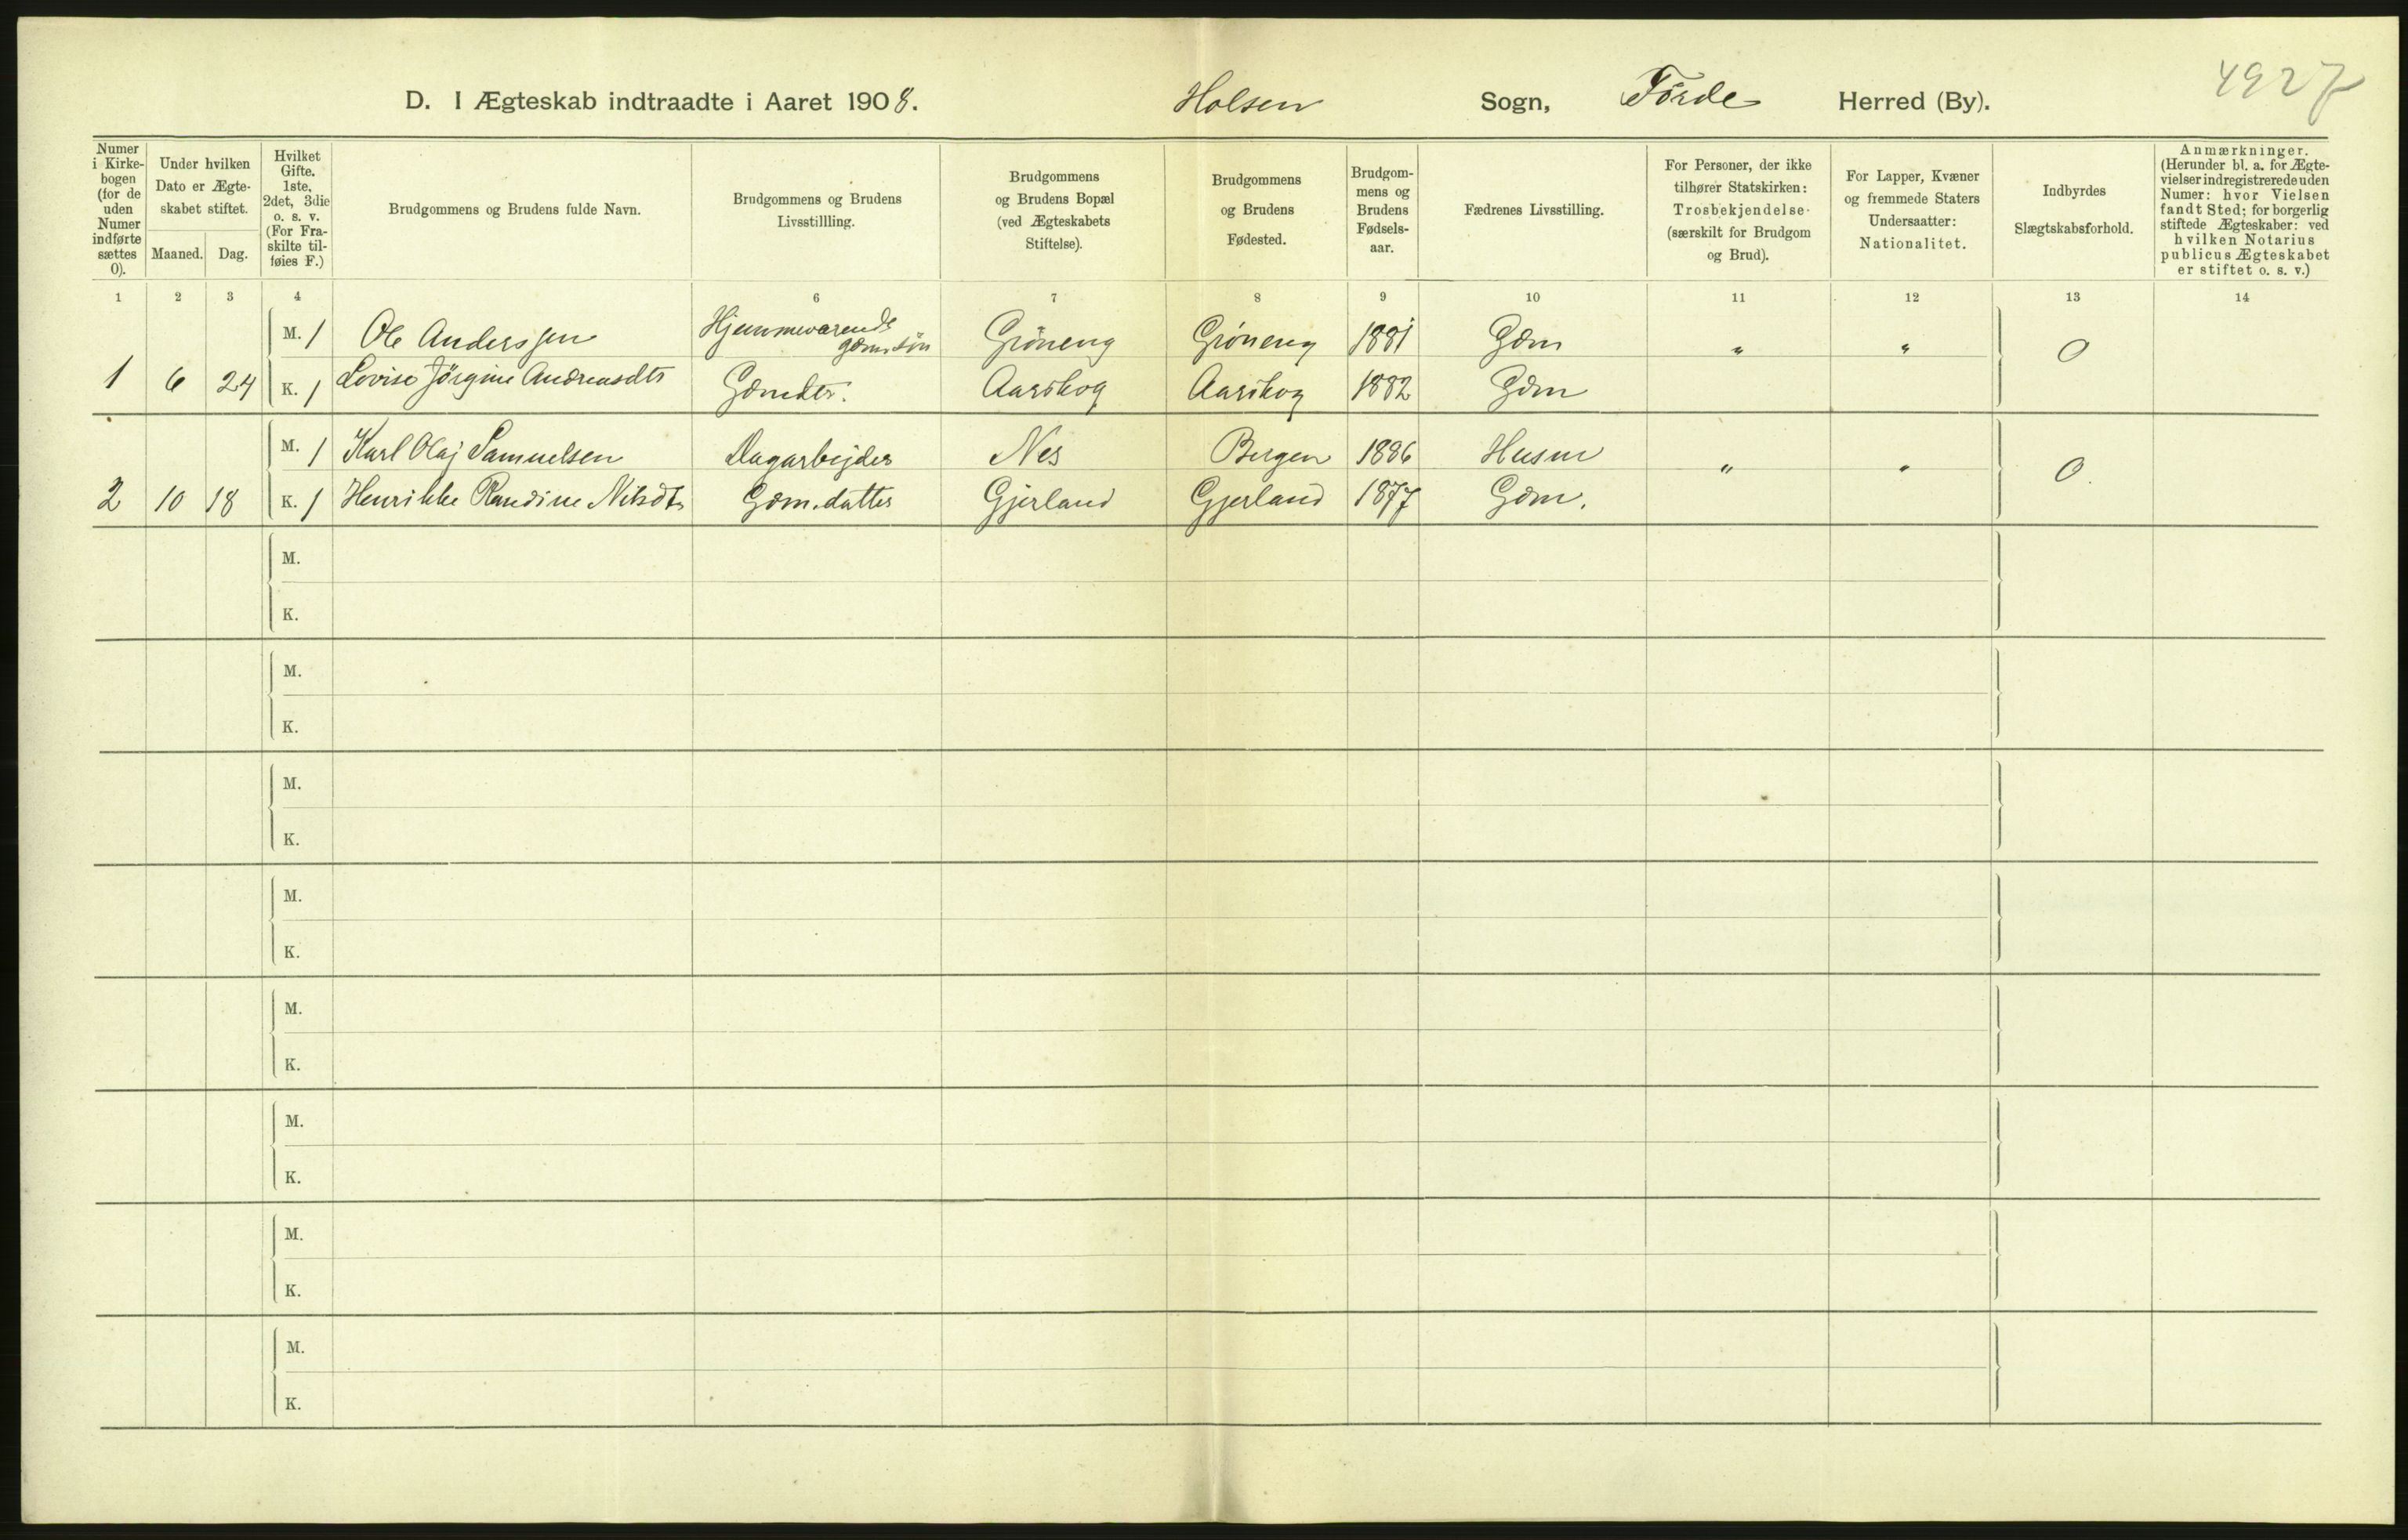 4927
D. I Ægteskab indtraadte i Aaret 1908. Holsen Sogn, Förde Herred (By).
Numer i Kirkebogen (for de uden Numer indførte sættes 0).
Under hvilken Dato er Ægteskabet stiftet.
Maaned. Dag.
Hvilket Gifte. 1ste, 2det, 3die o. s. v. (For Fraskilte tilføies F.)
Brudgommens og Brudens fulde Navn.
Brudgommens og Brudens Livsstillling.
Brudgommens og Brudens Bopæl (ved Ægteskabets Stiftelse).
Brudgommens og Brudens Fødested.
Brudgommens og Brudens Fødselsaar.
Fædrenes Livsstilling.
For Personer, der ikke tilhører Statskirken: Trosbekjendelse (særskilt for Brudgom og Brud).
For Lapper, Kvæner og fremmede Staters Undersaatter: Nationalitet.
Indbyrdes Slægtskabsforhold.
Anmærkninger. (Herunder bl. a. for Ægtevielser indregistrerede uden Numer: hvor Vielsen fandt Sted; for borgerlig stiftede Ægteskaber: ved hvilken Notarius publicus Ægteskabet er stiftet o. s. v.)
1 2 3 4 6 7 8 9 10 11 12 13 14
M. 1 Ole Anderssen Hjemmeværende gdm. sön Gröneng Gröneng 1881 Gdm " " 0
1 6 24 K. 1 Lovise Jörgine Andreasdtr Gdmdtr. Aarskog Aarskog 1882 Gdm
M. 1 Karl Olaj Samuelsen Dagarbejder Nes Bergen 1886 Husm " " 0.
2 10 18 K. 1 Henrikke Randine Nilsdtr Gdm. datter Gjerland Gjerland 1877 Gdm.
M.
K.
M.
K.
M.
K.
M.
K.
M.
K.
M.
K.
M.
K.
M.
K.